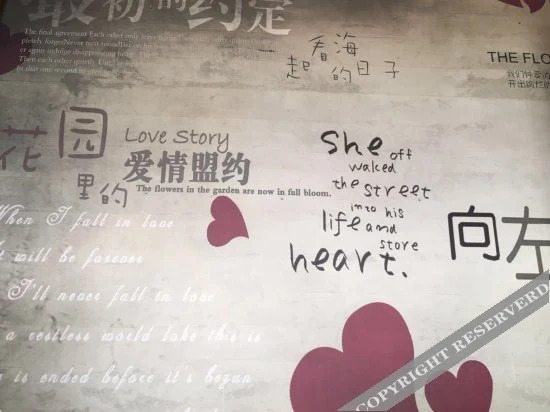 最初的约定
The final agreement Each other only
Then each other quietly
看海
起 的日子
THE FLO
开出绚烂的
花园
里的
Love Story
爱情盟约
The flowers in the garden are now in full bloom.
She off
walked
the street
into his
life and
store
heart.
向左
When I fall in love
It will be forever
I'll never fall in love
a restless world like this is
is ended before it's begun
COPYRIGHT RESERVERD